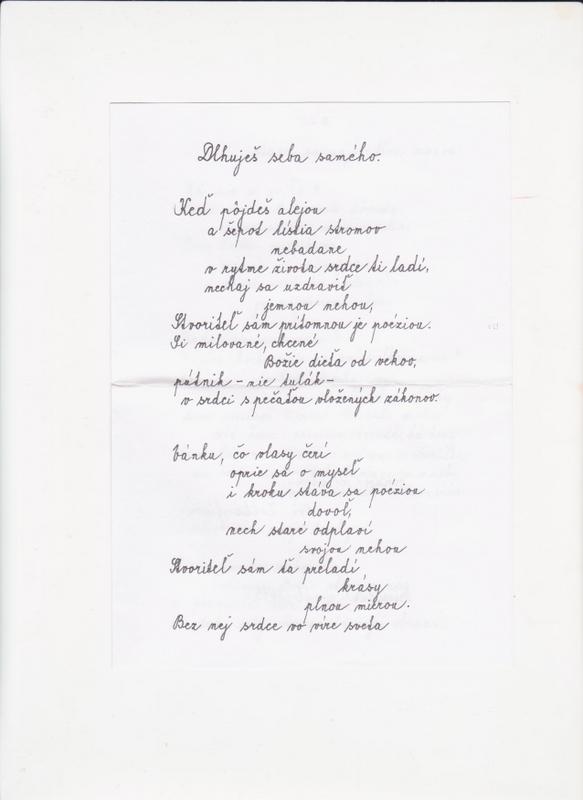 Dlhuješ seba samého.
Keď pôjdeš alejou
a šepot lístia stromov
nebadane
v rytme života srdce ti ladí,
nechaj sa uzdraviť
jemnou nehou,
Stvoriteľ sám prítomnou je poéziou.
Si milované, chcené
Božie dieťa od vekov,
pútnik - nie tulák -
v srdci s pečaťou vložených zákonov.
Vánku, čo vlasy čerí
oprie sa o myseľ
i kroku stáva sa poéziou
dovoľ,
nech staré odplaví
svojou nehou
Stvoriteľ sám ťa preladí
krásy
plnou mierou.
Bez nej srdce vo víre sveta